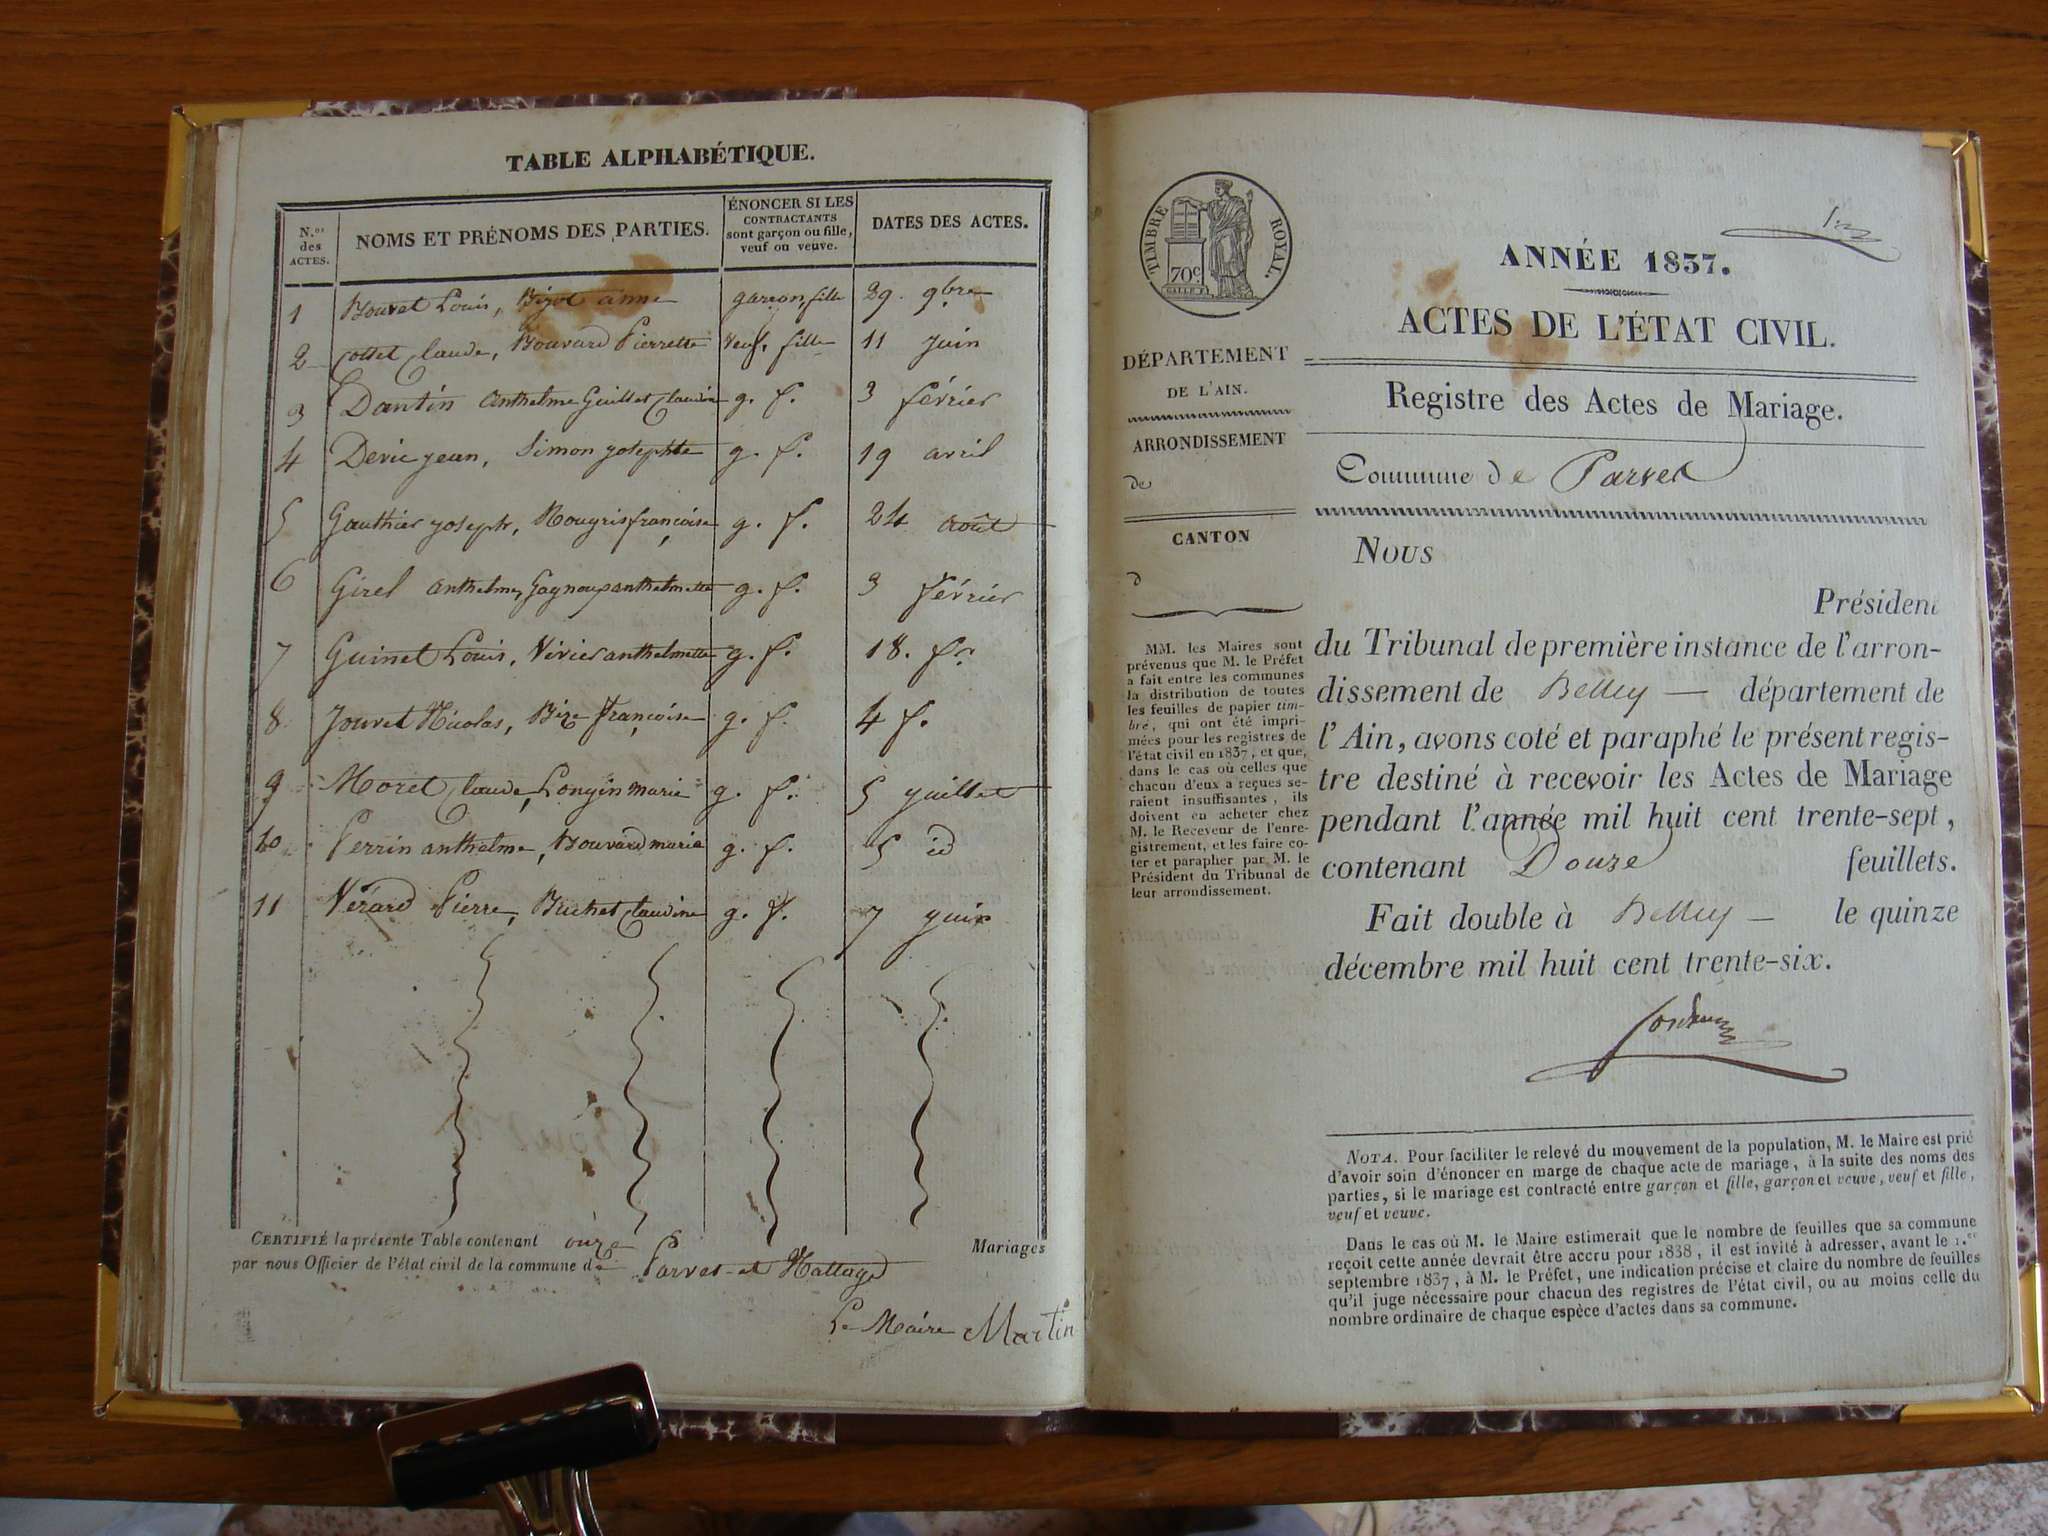 TABLE ALPHABÉTIQUE.
N.os des ACTES.
NOMS ET PRÉNOMS DES PARTIES.
ÉNONCER SI LES
CONTRACTANTS
sont garçon ou fille,
veuf ou veuve.
DATES DES ACTES.
1 Bouvet Louis, Bizot anne garçon, fille 29. 9bre
2 Cottet Claude, Bouvard Pierrette veuf, fille 11 juin
3 Dantin Anthelme Guillet Claudine g. f. 3 février
4 Deric jean, Simon josephte g. f. 19 avril
5 Gauthier joseph, Rougris françoise g. f. 24 août
6 Girel anthelme, anthelmette g. f. 3 février
7 Guinet Louis, Vivier anthelmette g. f. 18. fr.
8 Jouvet Nicolas, Bize françoise g. f. 4 f.
9 Moret Claude, Longin marie g. f. 5 juillet
10 Perrin anthelme, Bouvard marie g. f. 5 id
11 Vérard Pierre, Buchet Claudine g. f. 7 juin
CERTIFIÉ la présente Table contenant onze Mariages
par nous Officier de l'état civil de la commune de Parves et Nattages
Le Maire Martin
TIMBRE ROYAL.
70c
DÉPARTEMENT
DE L'AIN.
ARRONDISSEMENT
de
CANTON
d
MM. les Maires sont
prévenus que M. le Préfet
a fait entre les communes
la distribution de toutes
les feuilles de papier tim-
bré, qui ont été impri-
mées pour les registres de
l'état civil en 1837, et que,
dans le cas où celles que
chacun d'eux a reçues se-
raient insuffisantes, ils
doivent en acheter chez
M. le Receveur de l'enre-
gistrement, et les faire co-
ter et parapher par M. le
Président du Tribunal de
leur arrondissement.
ANNÉE 1837.
ACTES DE L'ÉTAT CIVIL.
Registre des Actes de Mariage.
Commune de Parves
Nous
Président
du Tribunal de première instance de l'arron-
dissement de Belley — département de
l'Ain, avons coté et paraphé le présent regis-
tre destiné à recevoir les Actes de Mariage
pendant l'année mil huit cent trente-sept,
contenant Douze feuillets.
Fait double à Belley — le quinze
décembre mil huit cent trente-six.
NOTA. Pour faciliter le relevé du mouvement de la population, M. le Maire est prié
d'avoir soin d'énoncer en marge de chaque acte de mariage, à la suite des noms des
parties, si le mariage est contracté entre garçon et fille, garçon et veuve, veuf et fille,
veuf et veuve.
Dans le cas où M. le Maire estimerait que le nombre de feuilles que sa commune
reçoit cette année devrait être accru pour 1838, il est invité à adresser, avant le 1.er
septembre 1837, à M. le Préfet, une indication précise et claire du nombre de feuilles
qu'il juge nécessaire pour chacun des registres de l'état civil, ou au moins celle du
nombre ordinaire de chaque espèce d'actes dans sa commune.